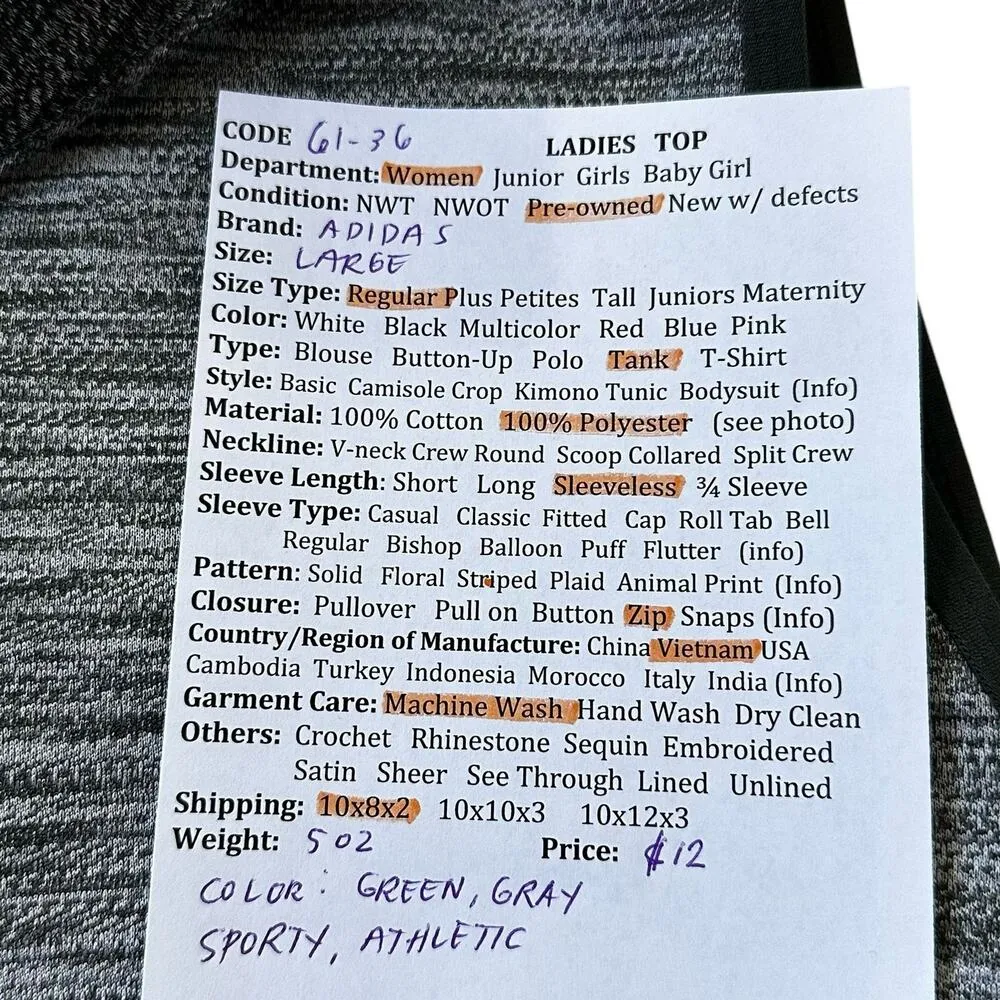 CODE 61-36 LADIES TOP
Department: Women Junior Girls Baby Girl
Condition: NWT NWOT Pre-owned New w/ defects
Brand: ADIDAS
Size: LARGE
Size Type: Regular Plus Petites Tall Juniors Maternity
Color: White Black Multicolor Red Blue Pink
Type: Blouse Button-Up Polo Tank T-Shirt
Style: Basic Camisole Crop Kimono Tunic Bodysuit (Info)
Material: 100% Cotton 100% Polyester (see photo)
Neckline: V-neck Crew Round Scoop Collared Split Crew
Sleeve Length: Short Long Sleeveless ¾ Sleeve
Sleeve Type: Casual Classic Fitted Cap Roll Tab Bell
Regular Bishop Balloon Puff Flutter (info)
Pattern: Solid Floral Striped Plaid Animal Print (Info)
Closure: Pullover Pull on Button Zip Snaps (Info)
Country/Region of Manufacture: China Vietnam USA
Cambodia Turkey Indonesia Morocco Italy India (Info)
Garment Care: Machine Wash Hand Wash Dry Clean
Others: Crochet Rhinestone Sequin Embroidered
Satin Sheer See Through Lined Unlined
Shipping: 10x8x2 10x10x3 10x12x3
Weight: 5 OZ Price: $12
COLOR: GREEN, GRAY
SPORTY, ATHLETIC